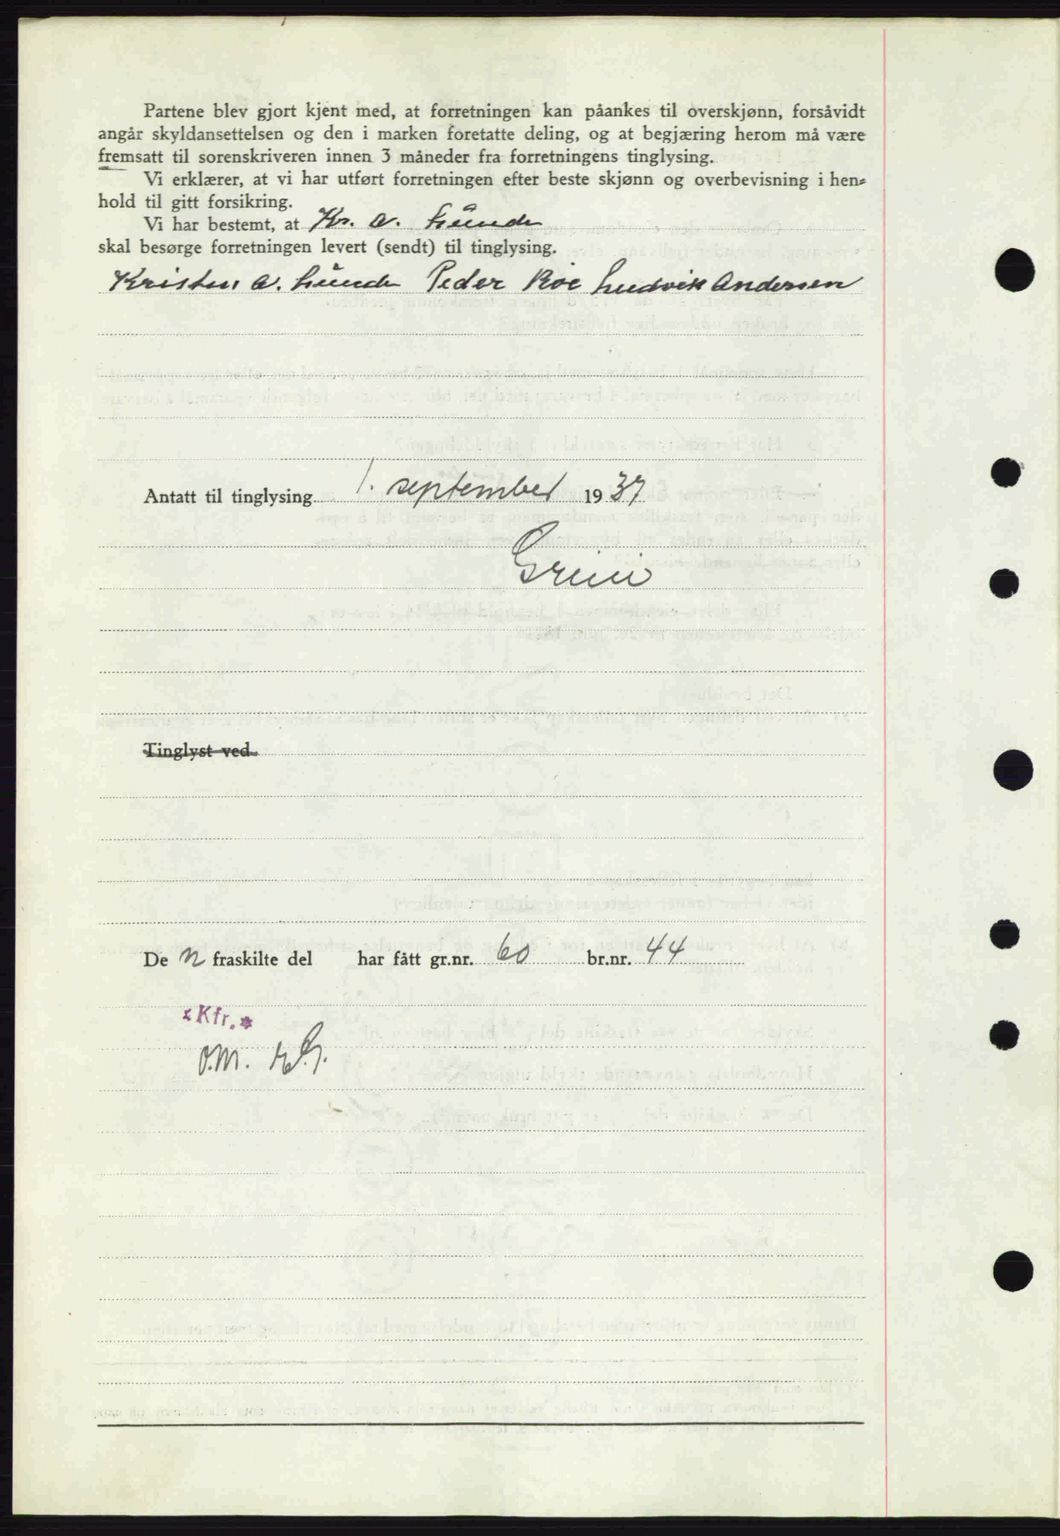 Partene blev gjort kjent med, at forretningen kan påankes til overskjønn, forsåvidt
angår skyldansettelsen og den i marken foretatte deling, og at begjæring herom må være
fremsatt til sorenskriveren innen 3 måneder fra forretningens tinglysing.
Vi erklærer, at vi har utført forretningen efter beste skjønn og overbevisning i hen=
hold til gitt forsikring.
Vi har bestemt, at Kr. A. Lünde
skal besørge forretningen levert (sendt) til tinglysing.
Kristen A. Lünde Peder Roe Ludvik Andersen
Antatt til tinglysing 1. september 1937
Tinglyst ved
De n fraskilte del har fått gr.nr. 60 br.nr. 44
*Kfr.*
o.m.